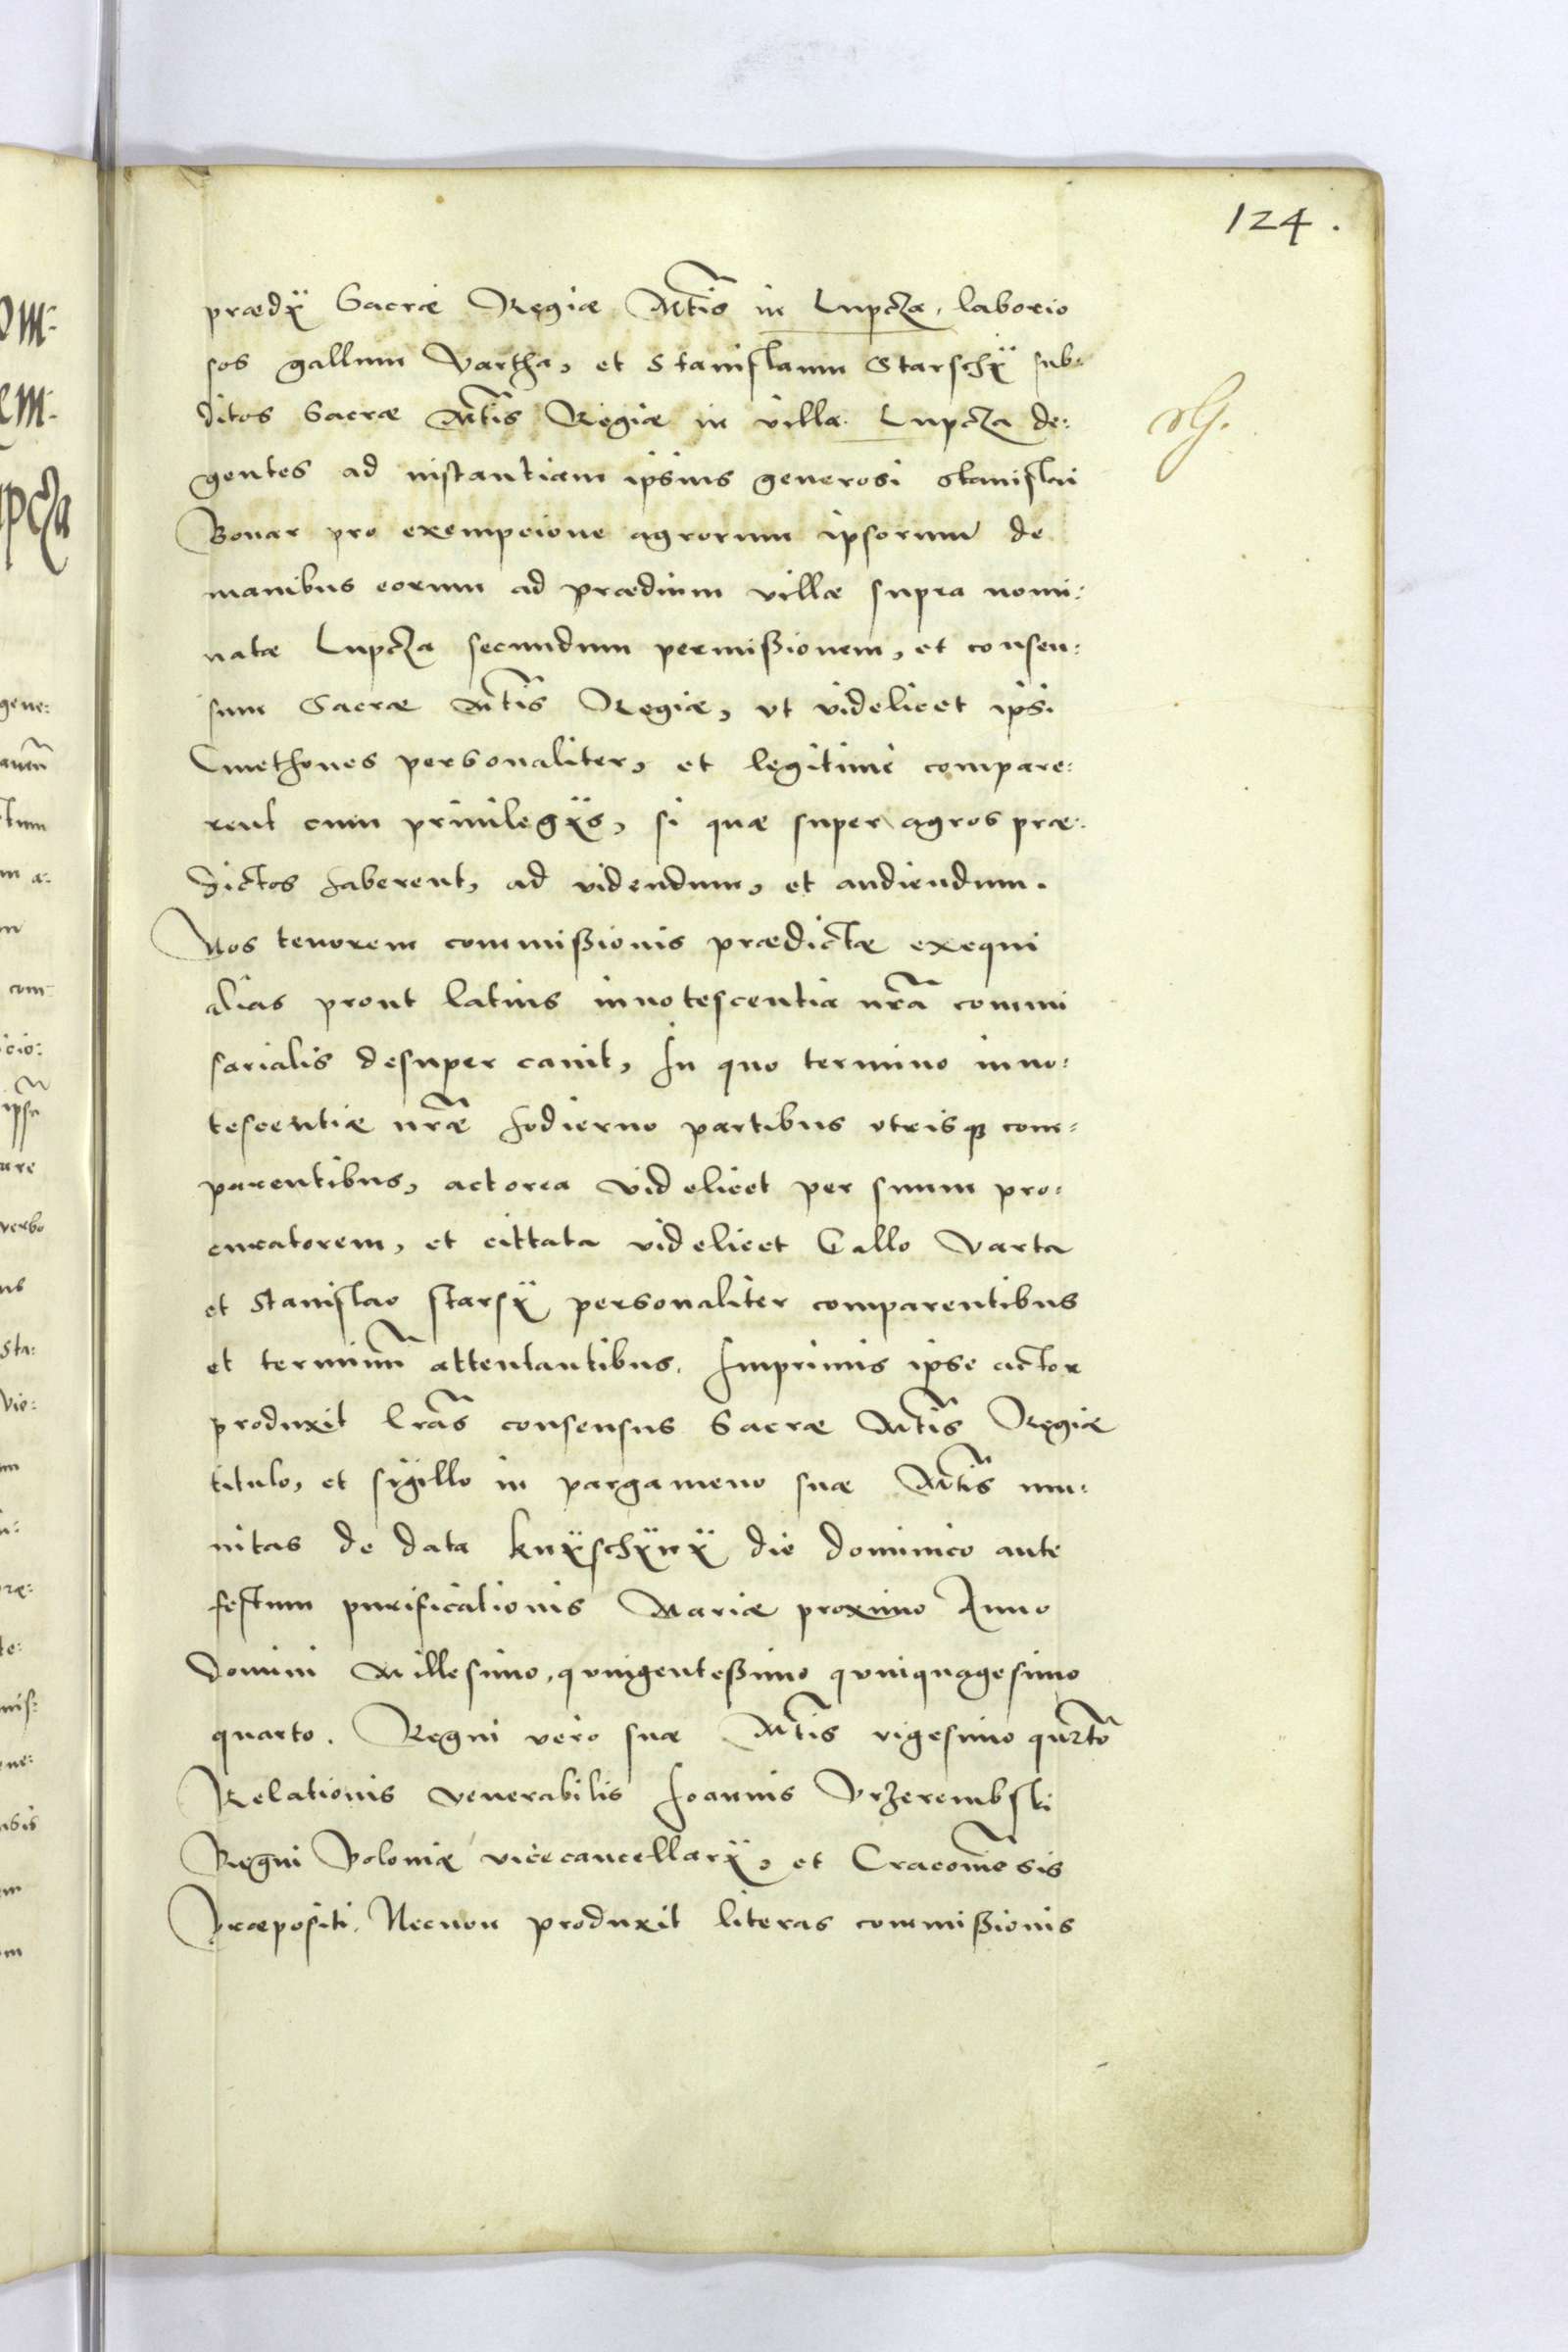 124.
prædÿ Sacræ Regiæ Mtis in Lupcza, laborio
sos gallum Vartha, et Stanislaum Starschÿ sub:
ditos Sacræ Mtis Regiæ in villa Lupcza de:
gentes ad instantiam ipsius generosi Stanislai
Bonar pro exempcione agrorum ipsorum de
manibus eorum ad prædium villæ supra nomi:
natæ Lupcza secundum permißionem, et consen:
sum Sacræ Mtis Regiæ, vt videlicet ipsi
Cmethones personaliter, et legitime compare:
rent cum privilegÿs, si quæ super agros præ:
dictos haberent, ad videndum, et audiendum.
Nos tenorem commißionis prædictæ exequi
alias prout latius innotescentia nrã commi
sarialis desuper canit, In quo termino inno:
tescentiæ nræ hodierno partibus vtrisq com:
parentibus, actorea videlicet per suum pro:
curatorem, et cittata videlicet Gallo Varta
et Stanislao starsÿ personaliter comparentibus
et terminũ attentantibus. Imprimis ipse actor
produxit lrãs consensus Sacræ Mtis Regiæ
titulo, et sigillo in pargameno suæ Mtis mu:
nitas de data knÿschÿnÿ die dominico ante
festum purificationis Mariæ proximo Anno
Domini Millesimo, quingenteßimo quinquagesimo
quarto. Regni vero suæ Mtis vigesimo quarto
Relationis venerabilis Joannis Przerembski
Regni Poloniæ vicecancellarÿ, et Cracoviẽsis
Præpositi. Necnon produxit literas commißionis